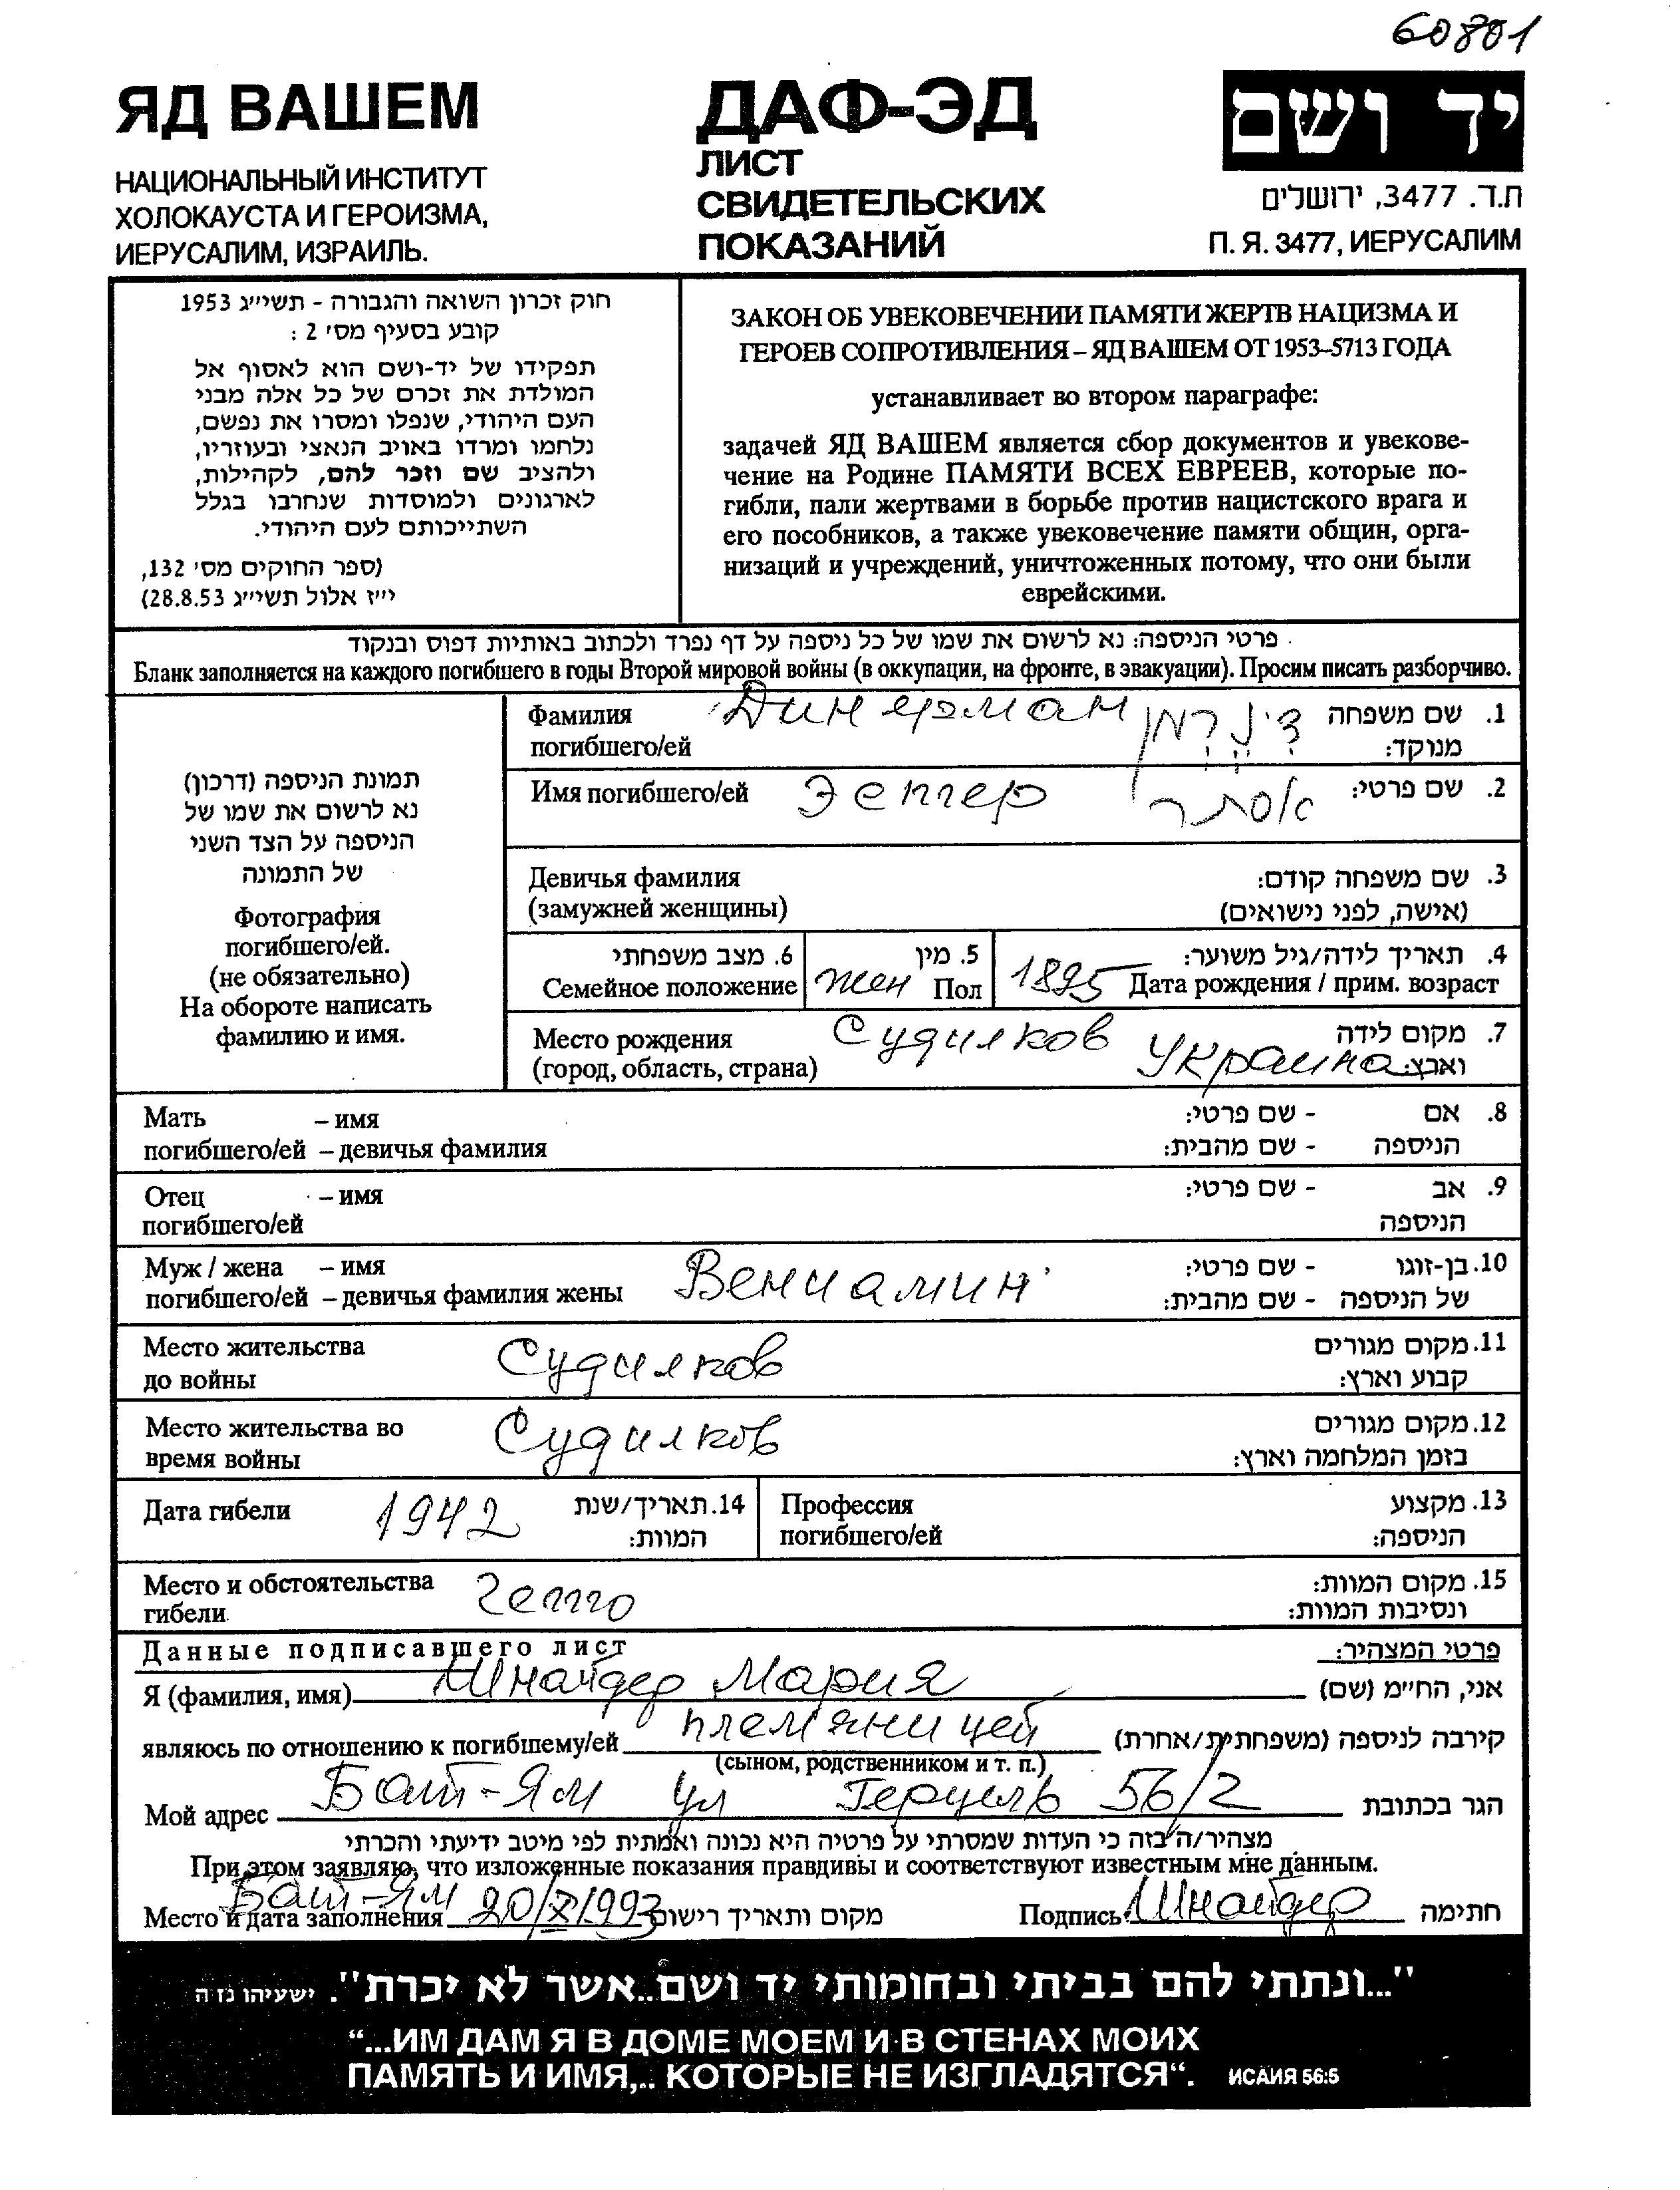 60801
ЯД ВАШЕМ
НАЦИОНАЛЬНЫЙ ИНСТИТУТ
ХОЛОКАУСТА И ГЕРОИЗМА,
ИЕРУСАЛИМ, ИЗРАИЛЬ.
ДАФ-ЭД
ЛИСТ
СВИДЕТЕЛЬСКИХ
ПОКАЗАНИЙ
יד ושם
ת.ד. 3477, ירושלים
П. Я. 3477, ИЕРУСАЛИМ
חוק זכרון השואה והגבורה - תשי״ג 1953
קובע בסעיף מס׳ 2 :
תפקידו של יד-ושם הוא לאסוף אל
המולדת את זכרם של כל אלה מבני
העם היהודי, שנפלו ומסרו את נפשם,
נלחמו ומרדו באויב הנאצי ובעוזריו,
ולהציב שם וזכר להם, לקהילות,
לארגונים ולמוסדות שנחרבו בגלל
השתייכותם לעם היהודי.
(ספר החוקים מס׳ 132,
י״ז אלול תשי״ג 28.8.53)
ЗАКОН ОБ УВЕКОВЕЧЕНИИ ПАМЯТИ ЖЕРТВ НАЦИЗМА И
ГЕРОЕВ СОПРОТИВЛЕНИЯ – ЯД ВАШЕМ ОТ 1953–5713 ГОДА
устанавливает во втором параграфе:
задачей ЯД ВАШЕМ является сбор документов и увекове-
чение на Родине ПАМЯТИ ВСЕХ ЕВРЕЕВ, которые по-
гибли, пали жертвами в борьбе против нацистского врага и
его пособников, а также увековечение памяти общин, орга-
низаций и учреждений, уничтоженных потому, что они были
еврейскими.
פרטי הניספה: נא לרשום את שמו של כל ניספה על דף נפרד ולכתוב באותיות דפוס ובנקוד
Бланк заполняется на каждого погибшего в годы Второй мировой войны (в оккупации, на фронте, в эвакуации). Просим писать разборчиво.
תמונת הניספה (דרכון)
נא לרשום את שמו של
הניספה על הצד השני
של התמונה
Фотография
погибшего/ей.
(не обязательно)
На обороте написать
фамилию и имя.
Фамилия Динерман דִינֶרְמַן 1. שם משפחה
погибшего/ей מנוקד:
Имя погибшего/ей Эстер אסתר 2. שם פרטי:
Девичья фамилия 3. שם משפחה קודם:
(замужней женщины) (אישה, לפני נישואים)
6. מצב משפחתי 5. מין 4. תאריך לידה/גיל משוער:
Семейное положение жен Пол 1895 Дата рождения / прим. возраст
Место рождения Судилков Украина 7. מקום לידה
(город, область, страна) וארץ:
Мать – имя 8. אם - שם פרטי:
погибшего/ей – девичья фамилия הניספה - שם מהבית:
Отец – имя 9. אב - שם פרטי:
погибшего/ей הניספה
Муж / жена – имя Вениамин 10. בן-זוגו - שם פרטי:
погибшего/ей – девичья фамилия жены של הניספה - שם מהבית:
Место жительства Судилков 11. מקום מגורים
до войны קבוע וארץ:
Место жительства во Судилков 12. מקום מגורים
время войны בזמן המלחמה וארץ:
Дата гибели 1942 14. תאריך/שנת Профессия 13. מקצוע
המוות: погибшего/ей הניספה:
Место и обстоятельства гетто 15. מקום המוות:
гибели ונסיבות המוות:
Данные подписавшего лист פרטי המצהיר:
Я (фамилия, имя) Шнайдер Мария אני, הח״מ (שם)
являюсь по отношению к погибшему/ей племяницей קירבה לניספה (משפחתית/אחרת)
(сыном, родственником и т. п.)
Мой адрес Бат-Ям ул Герцель 56/2 הגר בכתובת
מצהיר/ה בזה כי העדות שמסרתי על פרטיה היא נכונה ואמתית לפי מיטב ידיעתי והכרתי
При этом заявляю, что изложенные показания правдивы и соответствуют известным мне данным.
Место и дата заполнения Бат-Ям 20/X 1993 מקום ותאריך רישום Подпись Шнайдер חתימה
"...ונתתי להם בביתי ובחומותי יד ושם..אשר לא יכרת". ישעיהו נז ה
“...ИМ ДАМ Я В ДОМЕ МОЕМ И В СТЕНАХ МОИХ
ПАМЯТЬ И ИМЯ,.. КОТОРЫЕ НЕ ИЗГЛАДЯТСЯ“. ИСАИЯ 56:5